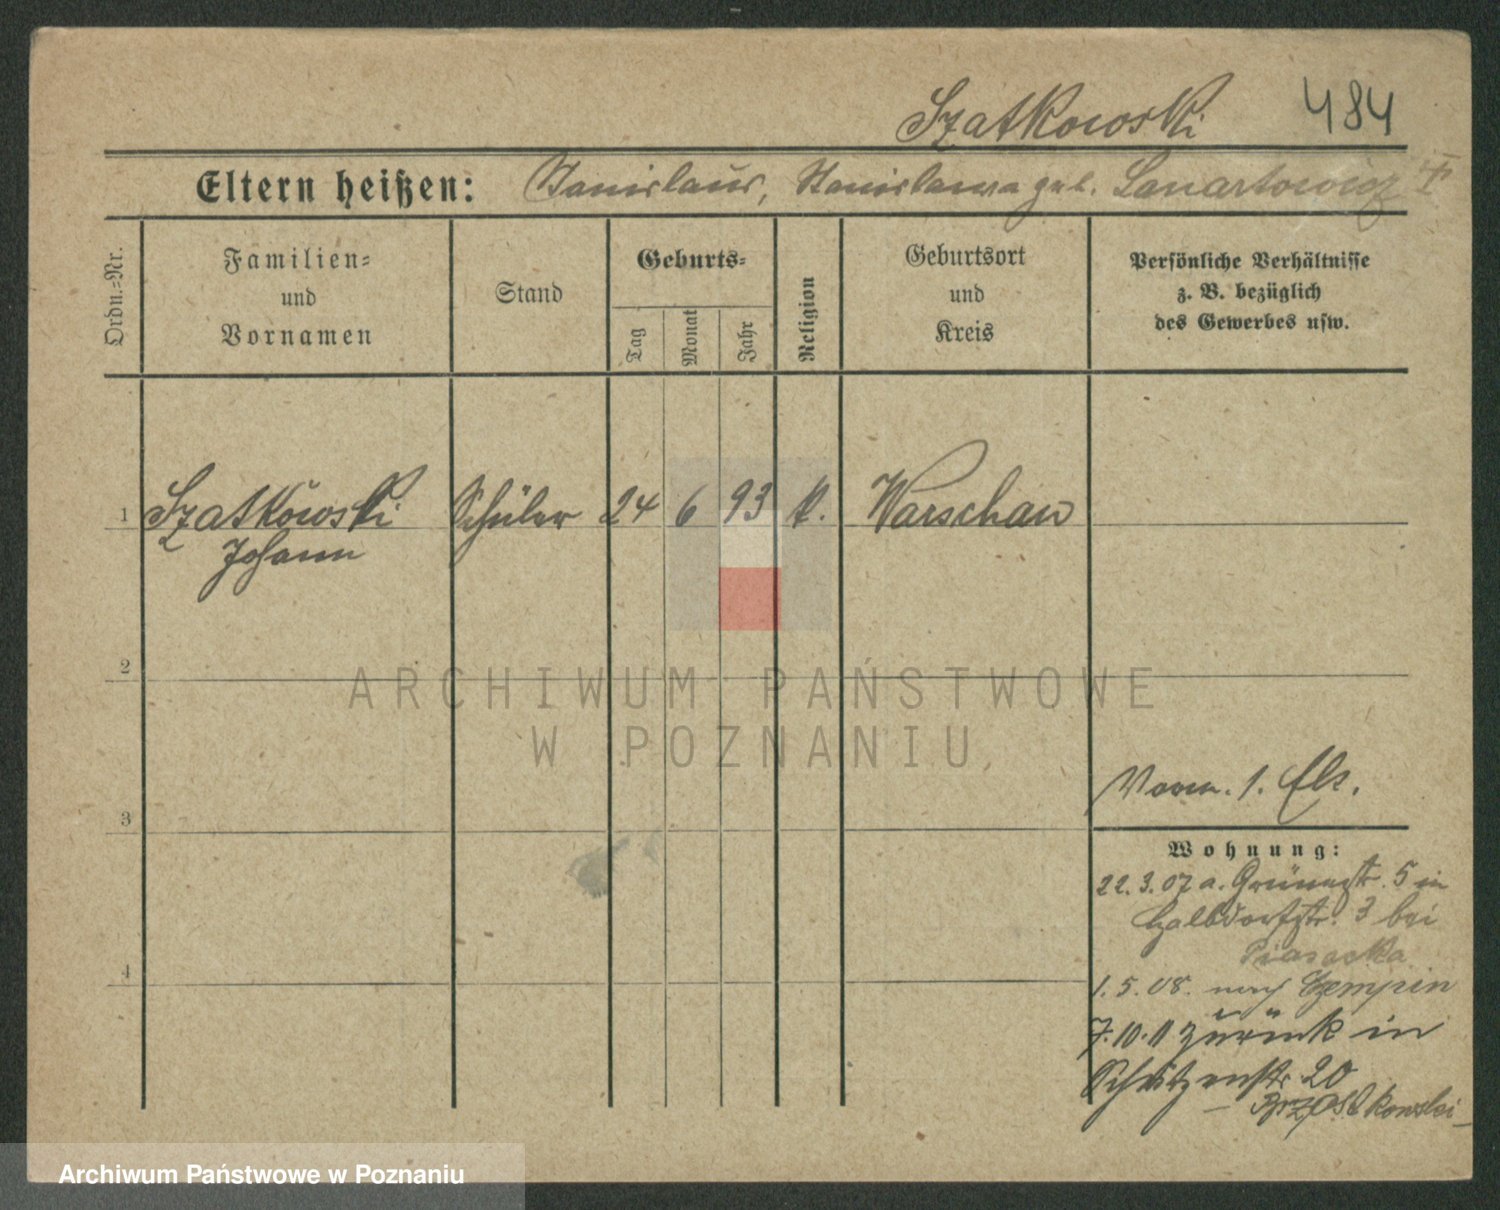 Szatkowski 484
Eltern heißen: Stanislaus, Stanislawa geb. Lanartowicz †
Ordn.-Nr.
Familien-
und
Vornamen
Stand
Geburts-
Tag
Monat
Jahr
Religion
Geburtsort
und
Kreis
Persönliche Verhältnisse
z. B. bezüglich
des Gewerbes usw.
1 Szatkowski Schüler 24 6 93 k. Warschau
Johann
2
ARCHIWUM PAŃSTWOWE
W POZNANIU
3
Vorm. 1.
Wohnung:
22.3.07 a. 5 in
3 bei
Piasecka
4
1.5.08. nach Czempin
7.10.11 zurück in
Schützenstr 20
Brzostkowski
Archiwum Państwowe w Poznaniu